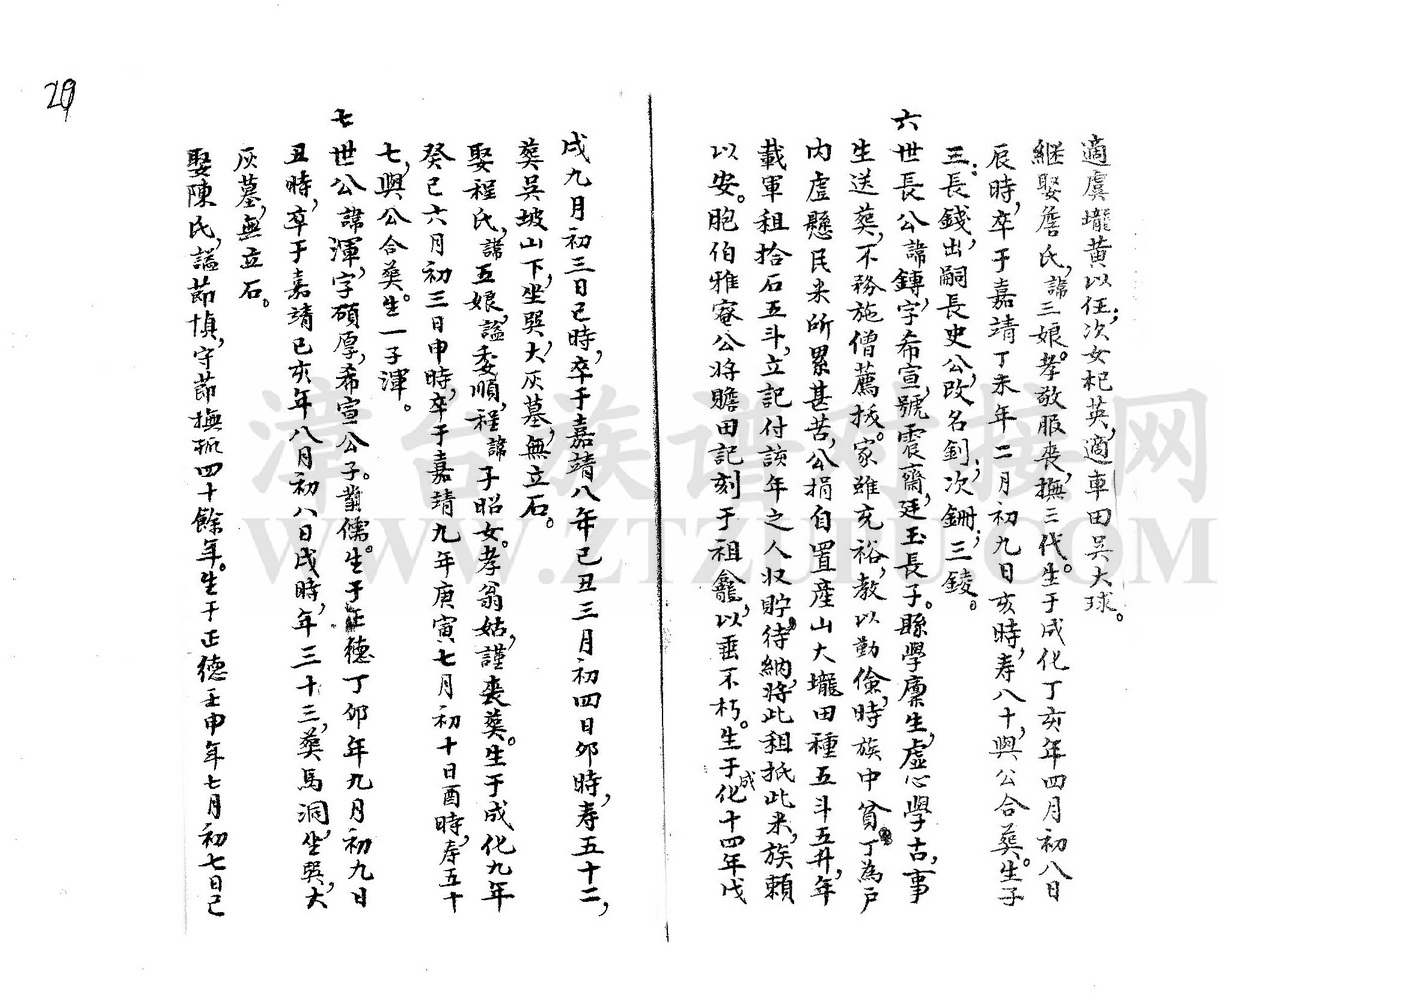 29
適虞壠黄以任；次女杞英，適車田吴大球。
継娶詹氏，諱三娘。孝敬服丧，撫三代。生于成化丁亥年四月初八日
辰時，卒于嘉靖丁未年二月初九日亥時，寿八十，與公合葬。生子
三：長錢，出嗣長史公，改名釗；次鉶；三錂。
六世長公諱鏄，字希宣，號震齋，廷玉長子。縣學廪生，虚心學古，事
生送葬，不務施僧薦拔。家雖充裕，教以勤儉，時族中貧丁為戶
内虚懸民米所累甚苦，公捐自置産山大壠田種五斗五升，年
載軍租拾石五斗，立記付該年之人收貯待納，將此租抵此米，族賴
以安。胞伯雅寧公将贍田記刻于祖龕，以垂不朽。生于成化十四年戊
戌九月初三日巳時，卒于嘉靖八年己丑三月初四日卯時，寿五十二，
葬吴坡山下，坐巽，大灰墓，無立石。
娶程氏，諱五娘，謚委順，程諱子昭女。孝翁姑，謹丧葬。生于成化九年
癸巳六月初三日申時，卒于嘉靖九年庚寅七月初十日酉時，寿五十
七，與公合葬。生一子渾。
七世公諱渾，字碩厚，希宣公子。業儒。生于正德丁卯年九月初九日
丑時，卒于嘉靖己亥年八月初八日戌時，年三十三，葬馬洞，坐巽，大
灰墓，無立石。
娶陳氏，謚節慎，守節撫孤四十餘年。生于正德壬申年七月初七日巳
漳台族谱对接网
WWW.ZTZUPU.COM